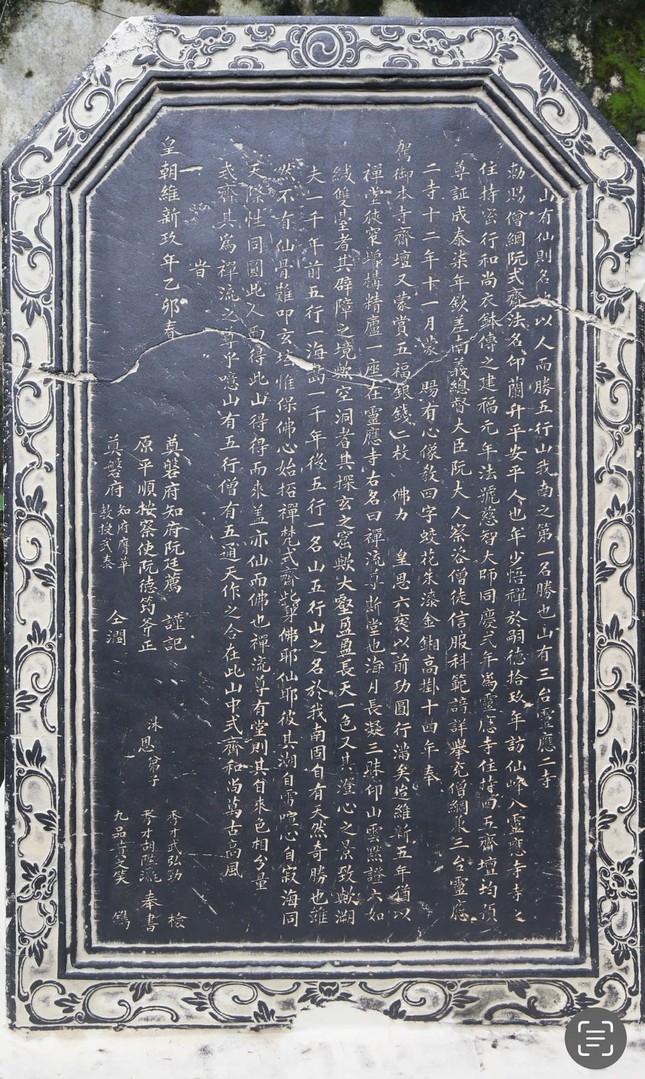 山有仙則名以人而勝五行山我南之第一名勝也山有三台靈應二寺
勅賜僧綱阮式齋法名印蘭升平安平人也年少悟禪於嗣德拾玖年訪仙峰入靈應寺寺之
住持密行和尚衣鉢傳之建福元年法號慈智大師同慶弍年為靈應寺住持而五齋壇均預
尊証成泰柒年欽差南義總督大臣阮大人察咨僧徒信服科範諳詳舉充僧綱兼三台靈應
二寺十二年十一月蒙 賜有心像教四字蛟花朱漆金錦高掛十四年奉
駕御本寺齋壇又蒙賞五福銀錢一枚 佛力 皇恩六奕以前功圓行滿矣迨維新五年猶以
禪堂狹窄增構精廬一座在靈應寺右名曰禪流尊斯堂也海月長凝三昧印山雲點證六如
緣雙疊者其辟障之境歟空洞者其探玄之窟歟大壑盈盈長天一色又其澄心之景致歟湖
夫一千年前五行一海島一千年後五行一名山五行山之名於我南固自有天然奇勝也雖
然不有仙骨難叩玄坛惟保佛心始招禪梵式齋此身佛耶仙耶彼其湖自雷喧心自寂海同
天際性同圓此人而得此山得得而來盖亦仙而佛也禪流尊有堂則其自來色相分量
式齋其為禪流之尊乎噫山有五行僧有五通天作之合在此山中式齋和尚萬古高風
旹
皇朝維新玖年乙卯春
奠磐府知府阮廷薦 謹記
原平順按察使阮德筠斧正
奠磐府 知府膺華 教授武泰 仝潤
沐恩弟子 秀才武弘勁 秀才胡 九品 奉書 鐫